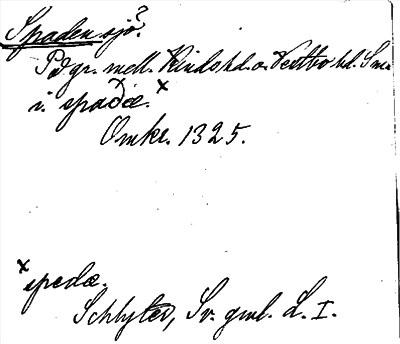 Spaden sjö?
På gr. mell. Kinds hd. o. Västbo hd. Sm.
i. spadæ. x
Omkr. 1325.
x spedæ.
Schlyter, Sv. gml. L. I.